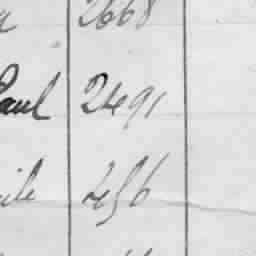 2668
Paul 2491
ile 256